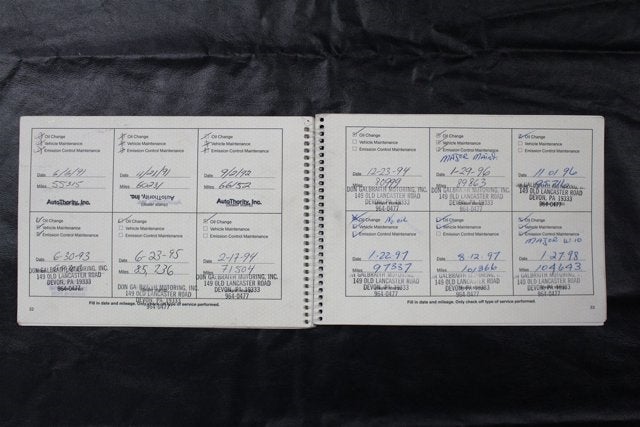 Oil Change
Vehicle Maintenance
Emission Control Maintenance
Date
Miles 55715
AutoThority, Inc.
Oil Change
Vehicle Maintenance
Emission Control Maintenance
Date
Miles
AutoThority, Inc.
Oil Change
Vehicle Maintenance
Emission Control Maintenance
Date 9/2/92
Miles 66152
AutoThority, Inc.
Oil Change
Vehicle Maintenance
Emission Control Maintenance
Date 6-30-93
Miles
DON GALBRAITH MOTORING, INC.
149 OLD LANCASTER ROAD
DEVON, PA 19333
964-0477
Oil Change
Vehicle Maintenance
Emission Control Maintenance
Date 6-23-95
Miles 85,736
DON GALBRAITH MOTORING, INC.
149 OLD LANCASTER ROAD
DEVON, PA 19333
964-0477
Oil Change
Vehicle Maintenance
Emission Control Maintenance
Date 2-17-94
Miles 71504
DON GALBRAITH MOTORING, INC.
149 OLD LANCASTER ROAD
DEVON, PA 19333
964-0477
Fill in date and mileage. Only check off type of service performed.
32
Oil Change
Vehicle Maintenance
Emission Control Maintenance
Date 12-23-94
Miles 80999
DON GALBRAITH MOTORING, INC.
149 OLD LANCASTER ROAD
DEVON, PA 19333
964-0477
Oil Change
Vehicle Maintenance
Emission Control Maintenance
MAJOR MAINT.
Date 1-29-96
Miles 89863
DON GALBRAITH MOTORING, INC.
149 OLD LANCASTER ROAD
DEVON, PA 19333
964-0477
Oil Change
Vehicle Maintenance
Emission Control Maintenance
Date 11 01 96
Miles
DON GALBRAITH MOTORING, INC.
149 OLD LANCASTER ROAD
DEVON, PA 19333
964-0477
Oil Change No oil
Vehicle Maintenance
Emission Control Maintenance
Date 1-22-97
Miles 97337
DON GALBRAITH MOTORING, INC.
149 OLD LANCASTER ROAD
DEVON, PA 19333
964-0477
Oil Change
Vehicle Maintenance
Emission Control Maintenance
Date 8-12-97
Miles 101866
DON GALBRAITH MOTORING, INC.
149 OLD LANCASTER ROAD
DEVON, PA 19333
964-0477
Oil Change
Vehicle Maintenance
Emission Control Maintenance
MAJOR W/O
Date 1-27-98
Miles 104643
DON GALBRAITH MOTORING, INC.
149 OLD LANCASTER ROAD
DEVON, PA 19333
964-0477
Fill in date and mileage. Only check off type of service performed.
33